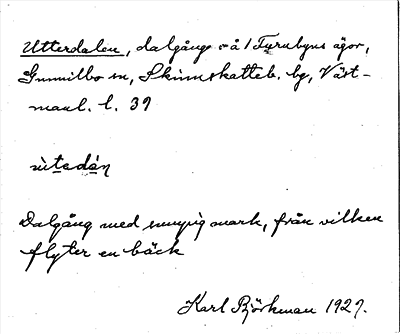 Utterdalen, dalgång på Turubyns ägor,
Gunnilbo sn, Skinnskatteb. bg, Väst-
manl. l. 39
ùtadán
Dalgång med sumpig mark, från vilken
flyter en bäck
Karl Björkman 1927.